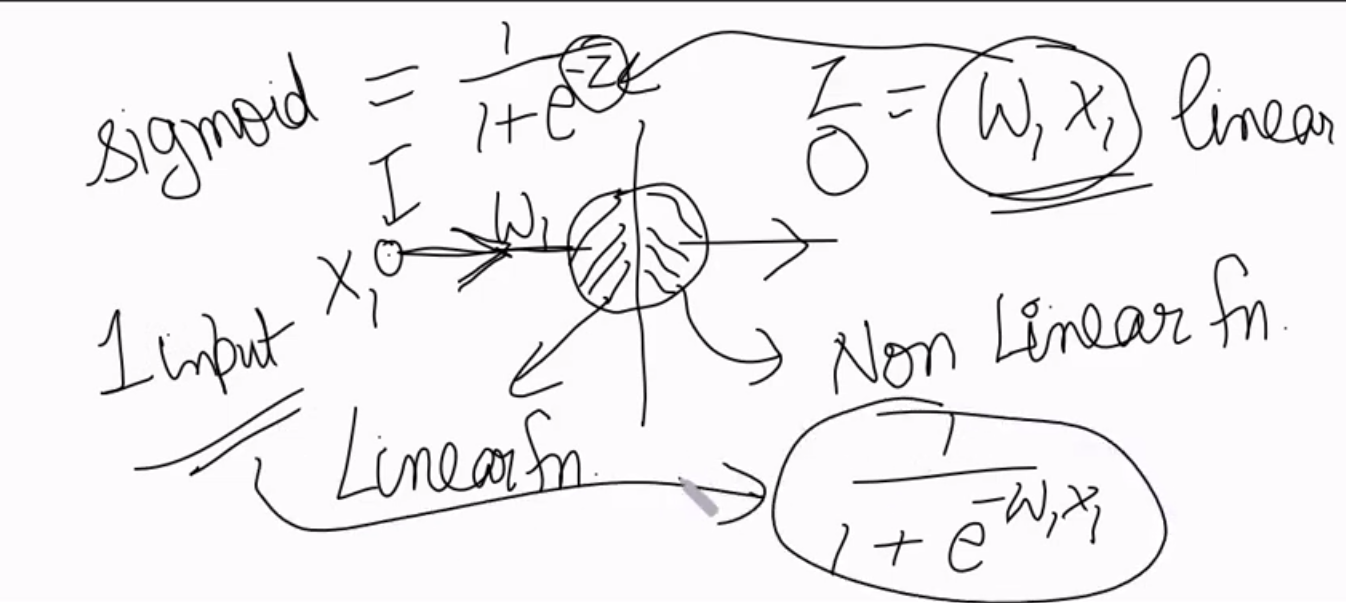 sigmoid = 1 / 1 + e^-z
Z = W₁ X₁ linear
O
I
X₁ W₁
1 input
Linear fn.
Non Linear fn.
1 / 1 + e^-W₁X₁